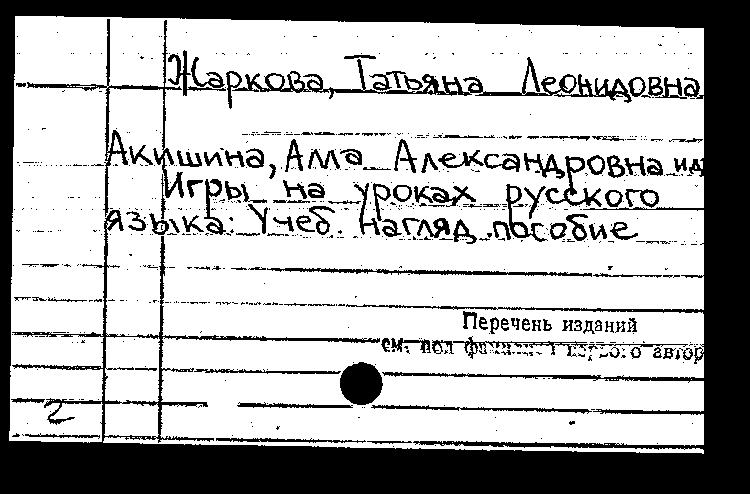 Жаркова, Татьяна Леонидовна
Акишина, Алла Александровна и др
Игры на уроках русского
языка: Учеб. нагляд. пособие
Перечень изданий
см. под фамилией первого автор
2